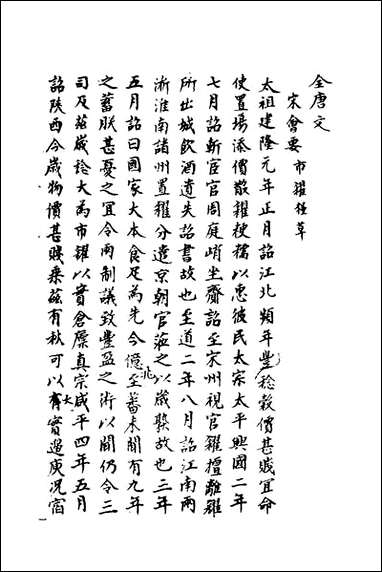 全唐文
宋會要 市糴糧草
太祖建隆元年正月詔江北頻年豐稔穀價甚賤宜命
使置場添價散糴粳糯以惠彼民太宗太平興國二年
七月詔斬宦官周庭峭坐齎詔至宋州視官糴擅離糴
所出城飲酒遺失詔書故也至道二年八月詔江南兩
浙淮南諸州置糴分遣京朝官蒞之以歲熟故也三年
五月詔曰國家大本食足為先今億兆至蕃未聞有九年
之蓄朕甚憂之宜令兩制議致豐盈之術以聞仍令三
司及茲歲稔大為市糴以實倉廩真宗咸平四年五月
詔陝西今歲物價甚賤乘茲有秋可以大實邊庾況宿